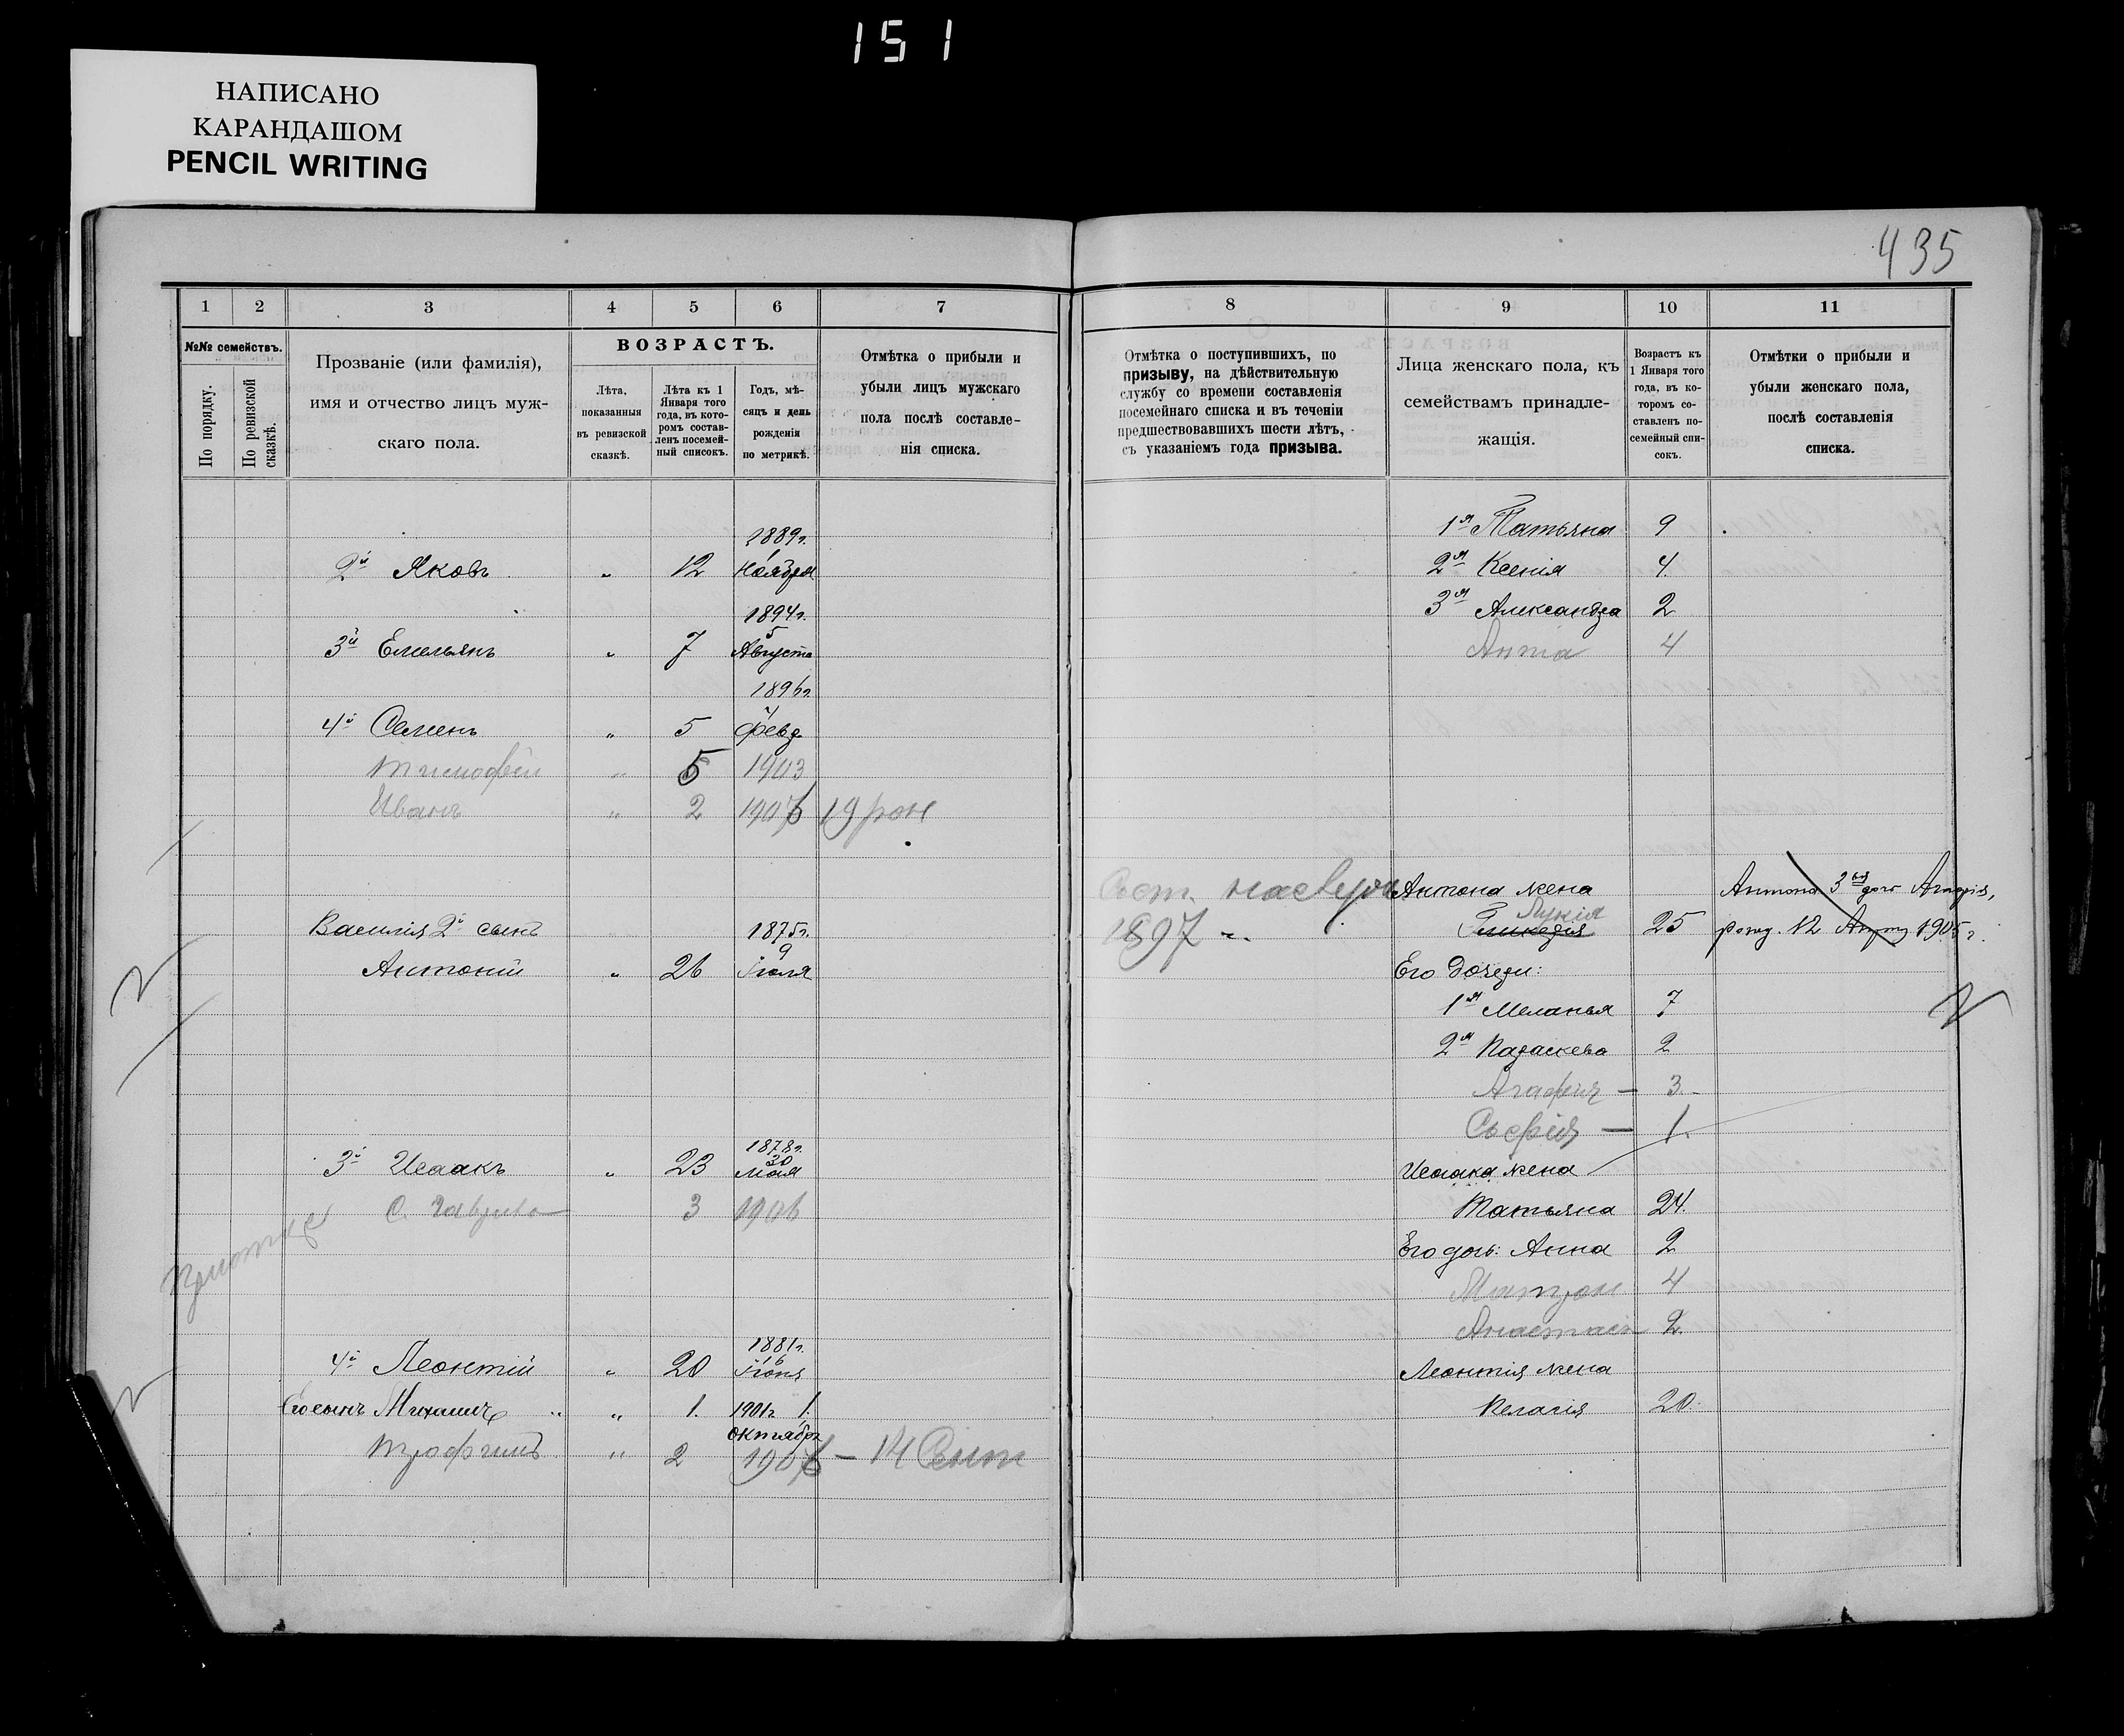 151
НАПИСАНО
КАРАНДАШОМ
PENCIL WRITING
435
1 2 3 4 5 6 7
№№ семействъ.
По порядку.
По ревизской сказкѣ.
Прозваніе (или фамилія),
имя и отчество лицъ муж-
скаго пола.
ВОЗРАСТЪ.
Лѣта,
показанныя
въ ревизской
сказкѣ.
Лѣта къ 1
Января того
года, въ кото-
ромъ состав-
ленъ посемей-
ный списокъ.
Годъ, мѣ-
сяцъ и день
рожденія
по метрикѣ.
Отмѣтка о прибыли и
убыли лицъ мужскаго
пола послѣ составле-
нія списка.
1889г.
1
2й Яковъ " 12 Ноября
1894г.
5
3й Емельянъ " 7 Августа
1896г.
4
4й Семенъ " 5 Февр
Тимофей " 5 1903
Иванъ " 2 1906
Василія 2й сынъ 1875г.
9
Антоній " 26 Іюля
1878г.
30
3й Исаакъ " 23 Мая
3 1906
1881г.
16
4й Леонтій " 20 Іюня
Его сынъ Михаилъ " " 1. 1901г 1.
Октябрь
Трофимъ " 2 1906 — 14 Сент
8 9 10 11
Отмѣтка о поступившихъ, по
призыву, на дѣйствительную
службу со времени составленія
посемейнаго списка и въ теченіи
предшествовавшихъ шести лѣтъ,
съ указаніемъ года призыва.
Лица женскаго пола, къ
семействамъ принадле-
жащія.
Возрастъ къ
1 Января того
года, въ ко-
торомъ со-
ставленъ по-
семейный спи-
сокъ.
Отмѣтки о прибыли и
убыли женскаго пола,
послѣ составленія
списка.
1я Татьяна 9
2я Ксенія 4.
3я Александра 2
Анна 4
Антона жена Антона 3я доч
Лукія
1897 25 рожд. 12 1905 г.
Его дочери:
1я Меланья 7
2я Параскева 2
Агафия — 3.
Софія — 1.
Исаака жена
Татьяна 24.
Его дочь: Анна 2
4
Анастасія 2.
Леонтія жена
Пелагія 20.